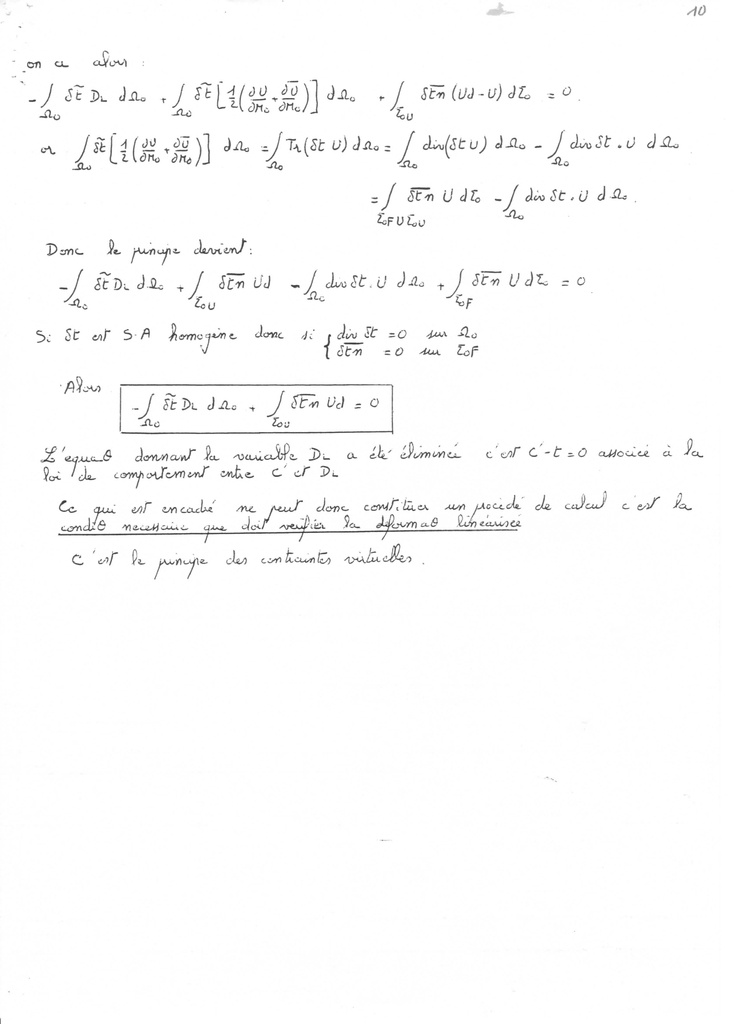 10
on a alors :
- ∫_Ω₀ δt̃ D_L dΩ₀ + ∫_Ω₀ δt̃ [½(∂U/∂M₀ + ∂Ū/∂M₀)] dΩ₀ + ∫_Σ₀U δt̅n̅ (Ud - U) dΣ₀ = 0
or ∫_Ω₀ δt̃ [½(∂U/∂M₀ + ∂Ū/∂M₀)] dΩ₀ = ∫_Ω₀ Tr(δt U) dΩ₀ = ∫_Ω₀ div(δt U) dΩ₀ - ∫_Ω₀ div δt . U dΩ₀
= ∫_Σ₀F ∪ Σ₀U δt̅n̅ U dΣ₀ - ∫_Ω₀ div δt . U dΩ₀.
Donc le principe devient :
- ∫_Ω₀ δt̃ D_L dΩ₀ + ∫_Σ₀U δt̅n̅ Ud - ∫_Ω₀ div δt . U dΩ₀ + ∫_Σ₀F δt̅n̅ U dΣ₀ = 0
Si δt est S.A homogène donc si { div δt = 0 sur Ω₀
δt̅n̅ = 0 sur Σ₀F
Alors - ∫_Ω₀ δt̃ D_L dΩ₀ + ∫_Σ₀U δt̅n̅ Ud = 0
L'equaθ donnant la variable D_L a été éliminée c'est C'-t = 0 associée à la
loi de comportement entre C' et D_L
Ce qui est encadré ne peut donc constituer un procédé de calcul c'est la
condiθ necessaire que doit verifier la déformaθ linéarisée
C'est le principe des contraintes virtuelles.